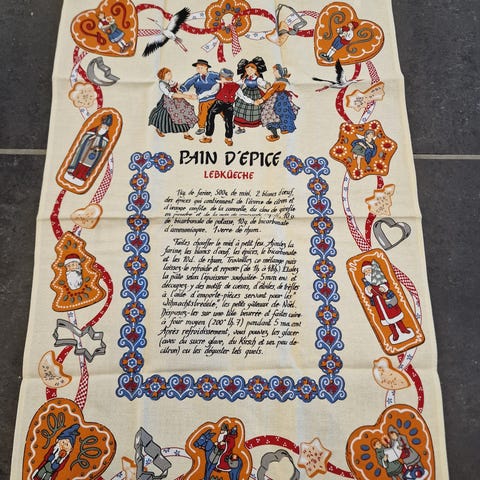 PAIN D'ÉPICE
LEBKÜECHE
1kg de farine, 500g de miel, 2 blancs d'œuf,
des épices qui contiennent de l'écorce de citron et
d'orange confite de la cannelle, du clou de girofle
en poudre et de la noix de muscade 10g
de bicarbonate de potasse, 10g de bicarbonate
d'ammoniaque. 1 verre de rhum.
Faites chauffer le miel à petit feu. Ajoutez la
farine, les blancs d'œuf, les épices, le bicarbonate
et les 10cl. de rhum. Travaillez ce mélange puis
laissez-le refroidir et reposer (de 1h à 48h). Etalez
la pâte selon l'épaisseur souhaitée 5mm env. et
découpez-y des motifs de cœurs, d'étoiles, de bêtes
à l'aide d'emporte-pièces servant pour les
petits gâteaux de Noël.
Disposez-les sur une tôle beurrée et faites cuire
à four moyen (200° Th.7) pendant 5 mn env.
Après refroidissement, vous pouvez les glacer
(avec du sucre glace, du Kirsch et un peu de
citron) ou les déguster tels quels.